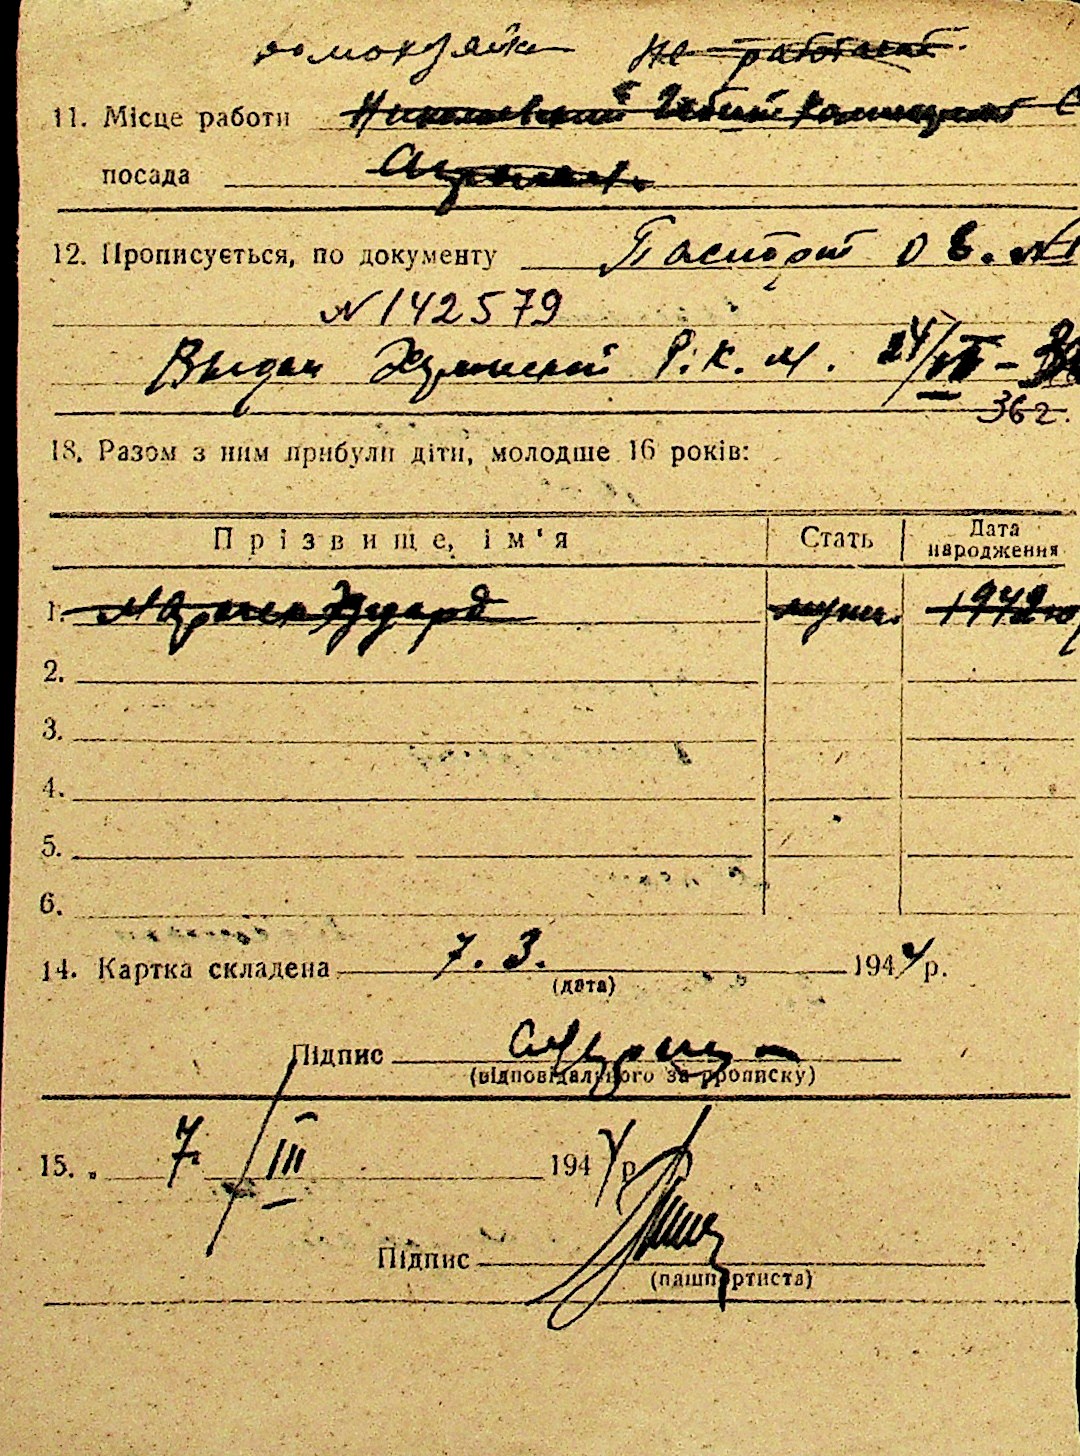 домохзяйка Не работает.
11. Місце работи Николаевский
посада
12. Прописується, по документу Паспорт
N 142579
Выдан Р. К. М. 24/VII-
36 г.
18. Разом з ним прибули діти, молодше 16 років:
Прізвище, ім'я Стать Дата народження
1. Эдуард муж. 1942
2.
3.
4.
5.
6.
14. Картка складена 7. 3. 1944 р.
(дата)
Підпис
(відповідального за прописку)
15. „ 7 III 1944 р
Підпис
(пашпортиста)